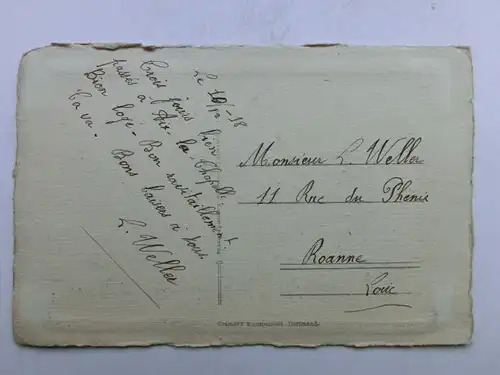 Le 10/12 - 18
Trois jours bien
passés à Aix-la-Chapelle.
Bien logé - Bon ravitaillement
Ça va.
Bons baisers à tous
L. Weller
Monsieur L. Weller
11 Rue du Phénix
Roanne
Loire